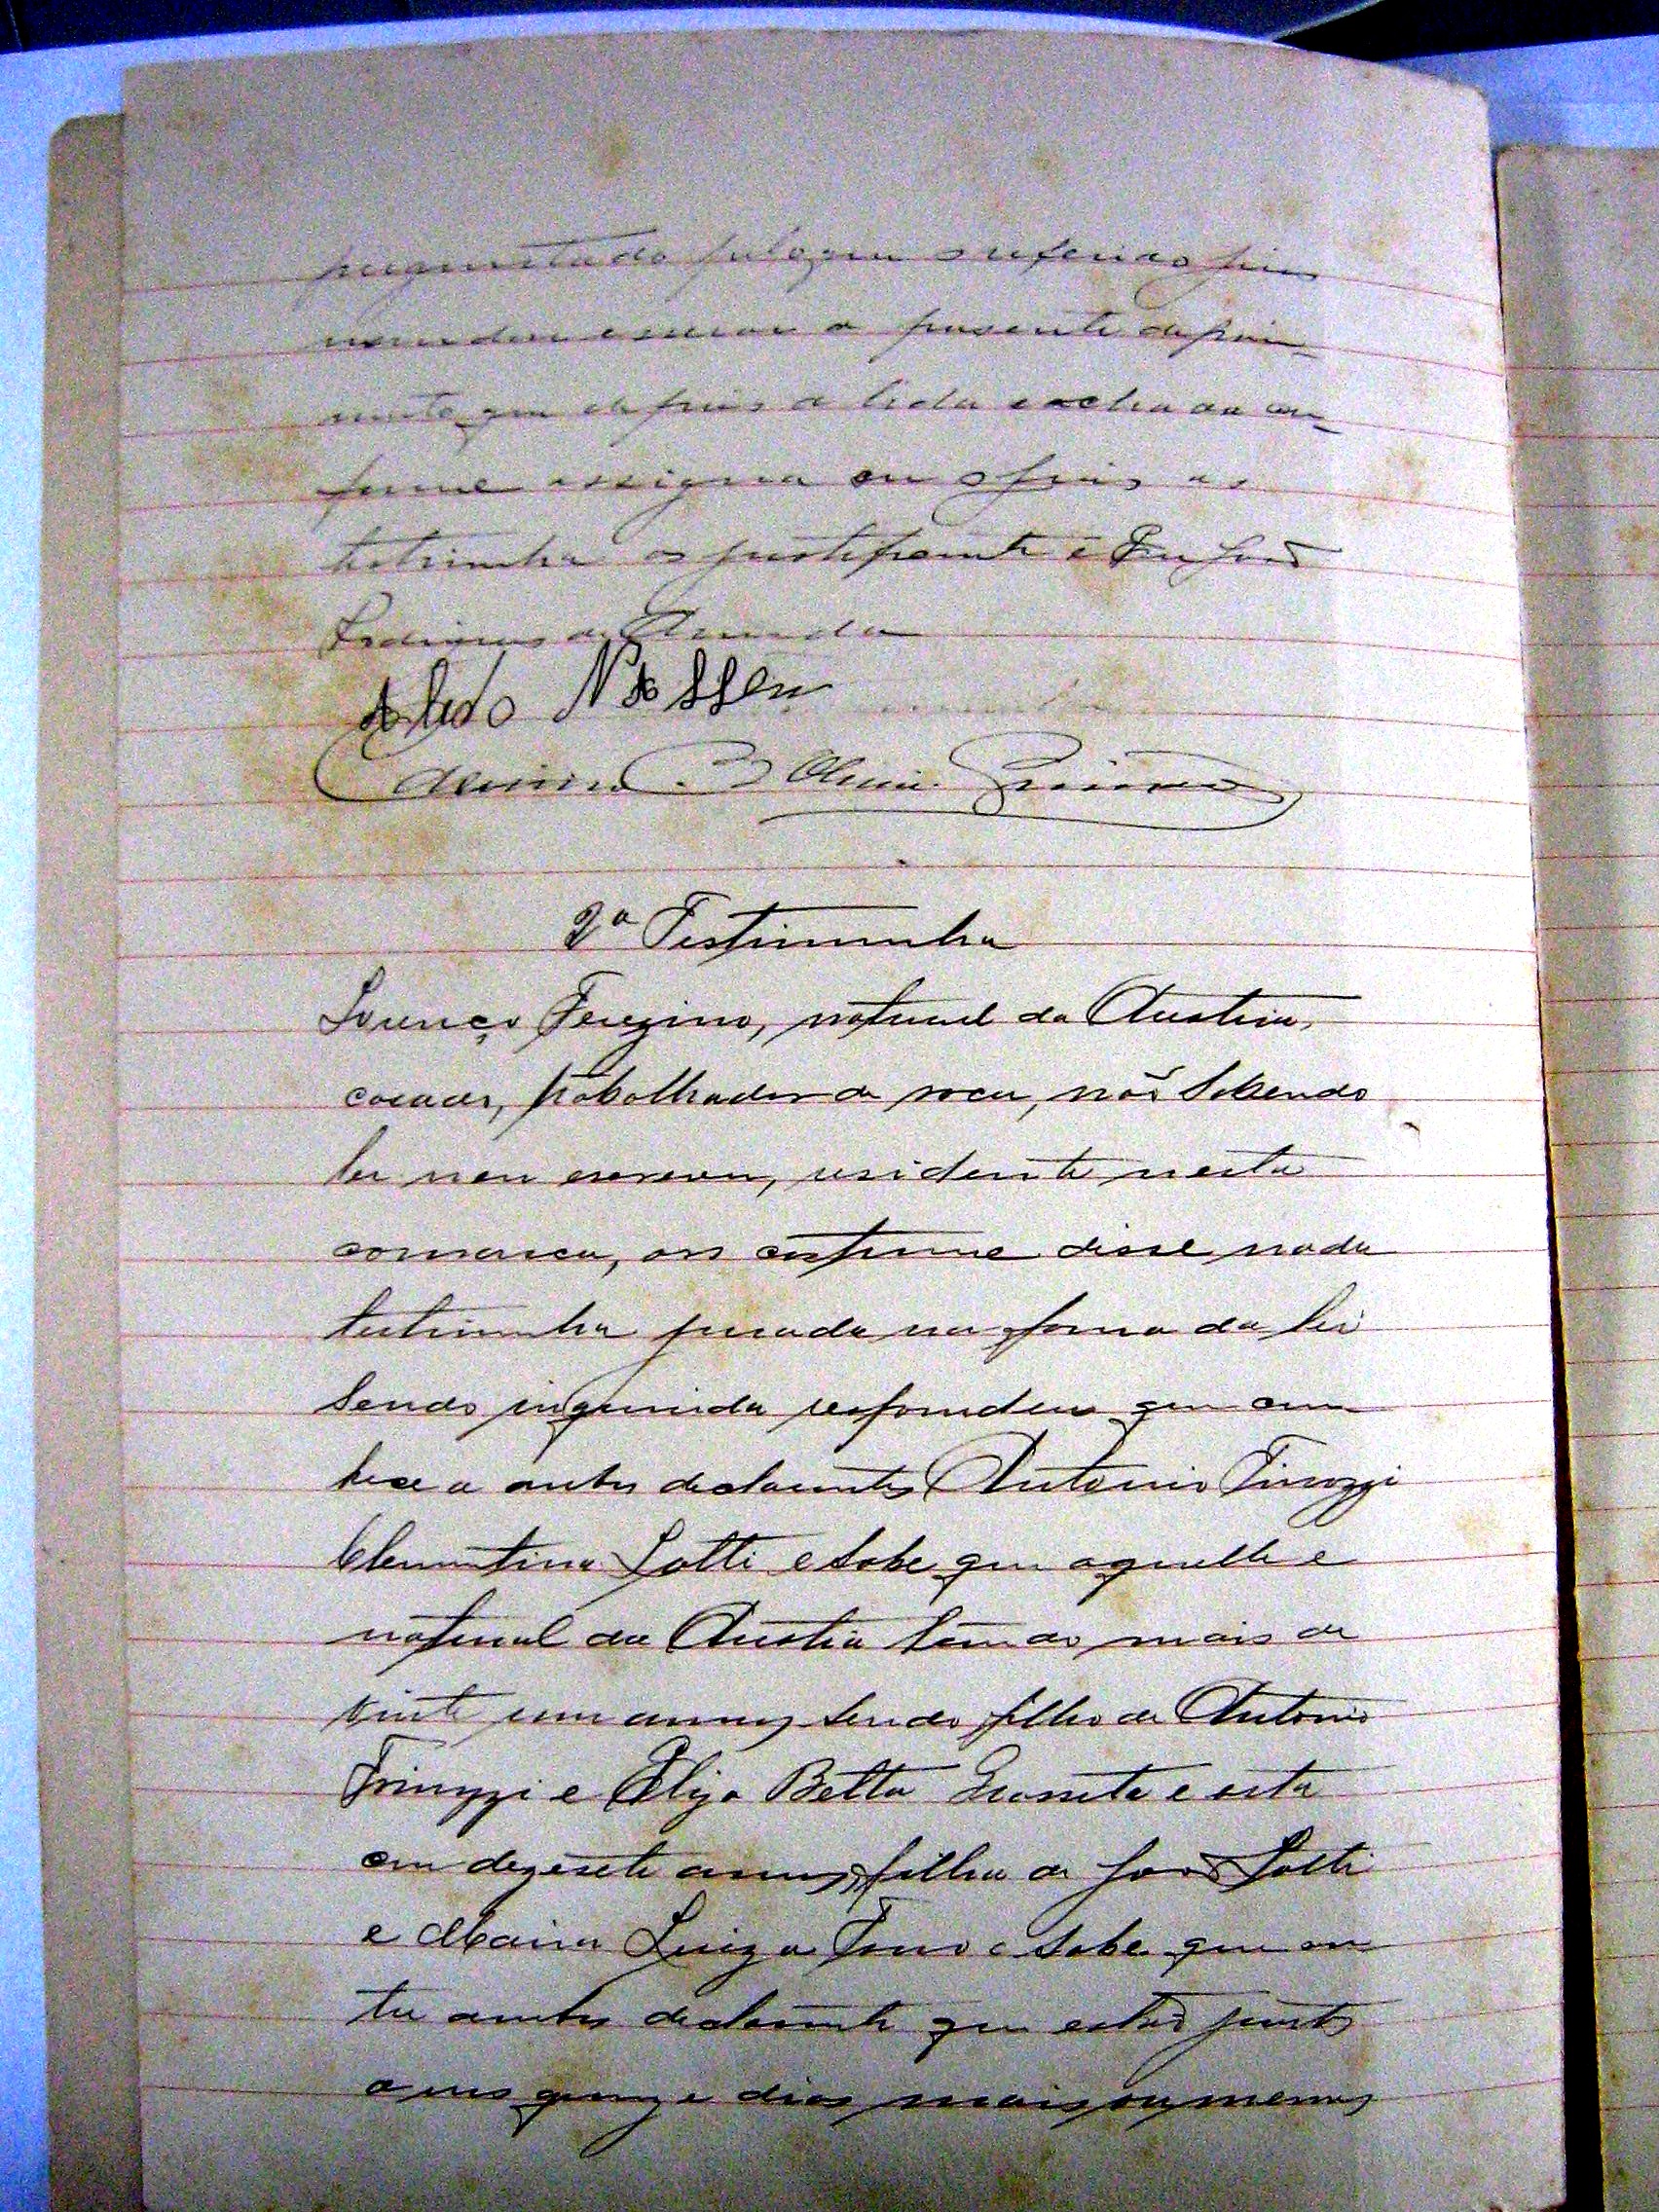 perguntado pelo que o referido juiz
mandou encerrar o presente depoi-
mento que depois de lido e achado con-
forme assigna com o juiz, as
testimunha os justificante e Eu João
de Almeida
Nassen
2ª Testimunha
Lourenço natural da Austria,
casado, trabalhador da roça, não sabendo
ler nem escrever, residente nesta
comarca, aos costume disse nada
testimunha jurada na forma da lei
sendo inquirida respondeu que conn
hece a ambos declarantes Antonio Tinozzi
Clementina Lotti e sabe que aquelle e
natural da Austria tendo mais de
vinte um annos sendo filho de Antonio
e Eliza Betta e esta
com dezesete annos, filha de João Lotti
e Maria Luiza e sabe que en
tre ambos declarante que estão juntos
a uns quinze dias mais ou menos